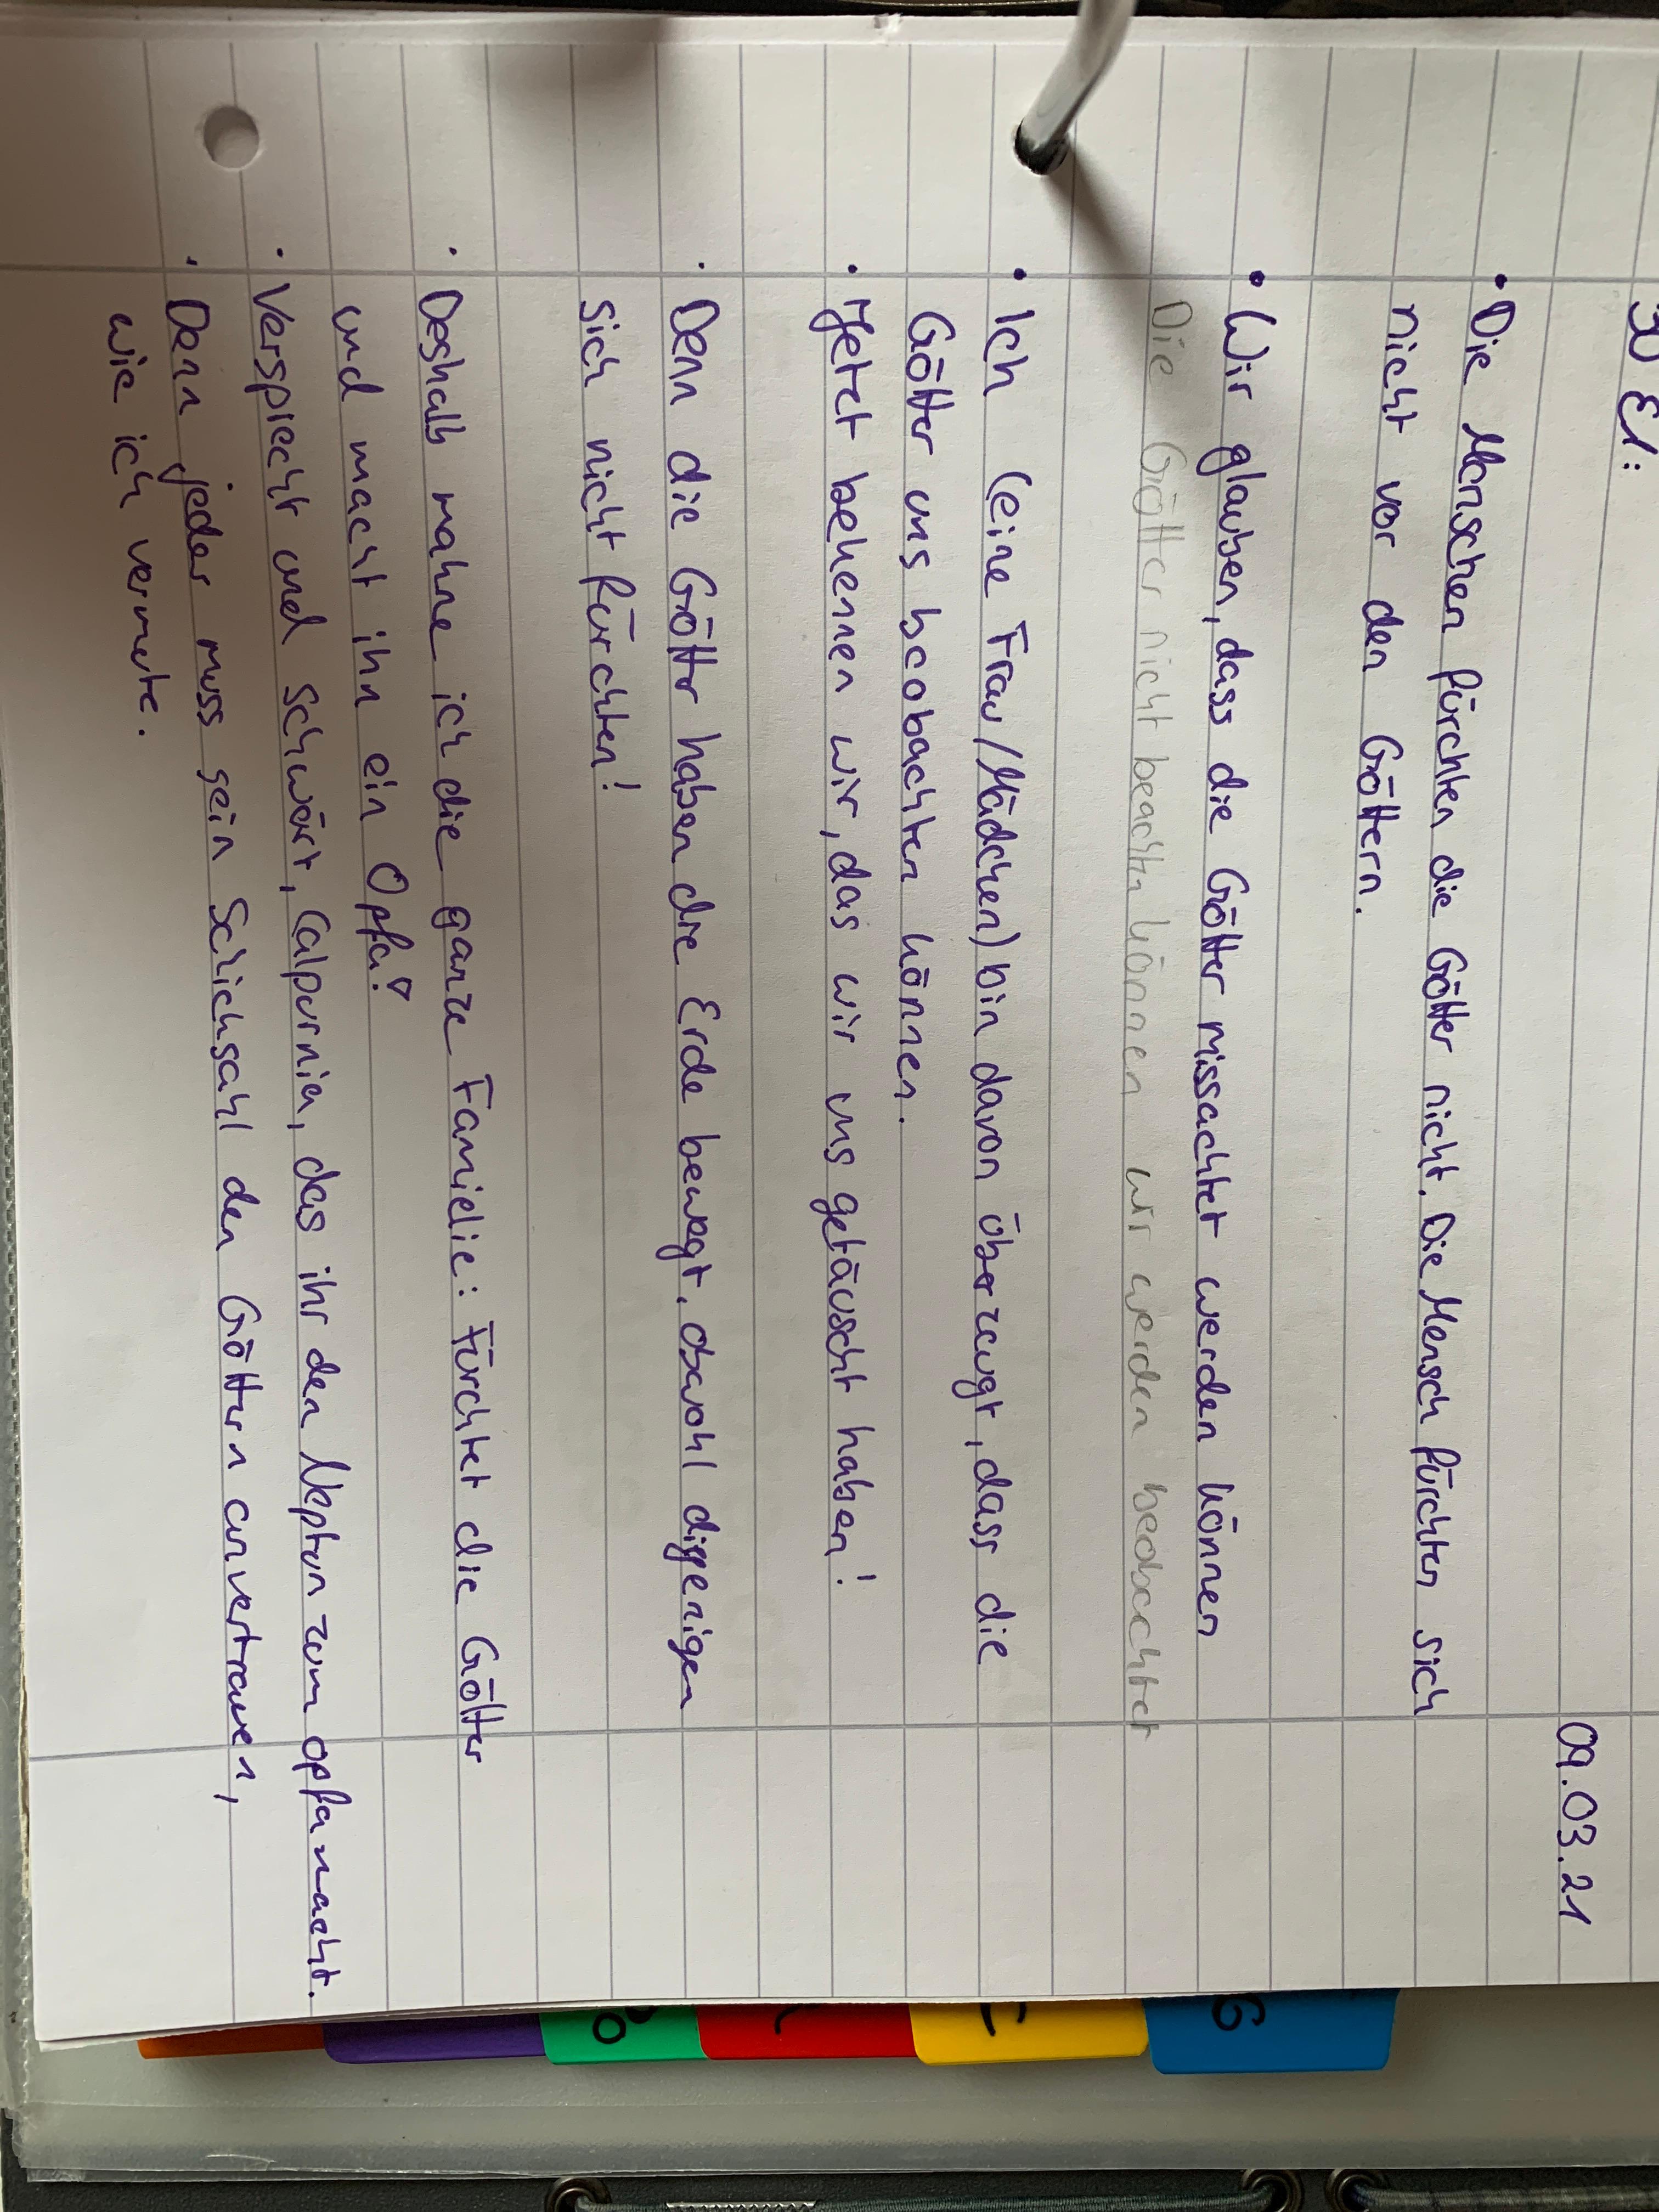 09.03.21
30 E1:
• Die Menschen fürchten die Götter nicht. Die Mensch fürchten sich
nicht vor den Göttern.
• Wir glauben, dass die Götter missachtet werden können
Die Götter nicht beachten können wir werden beobachtet
• Ich (eine Frau/Mädchen) bin davon überzeugt, dass die
Götter uns beobachten können.
• Jetzt bekennen wir, das wir uns getäuscht haben!
• Denn die Götter haben die Erde bewegt, obwohl digenigen
sich nicht fürchten!
• Deshalb mahne ich die ganze Famielie: Fürchtet die Götter
und macht ihn ein Opfer!
• Versprecht und schwört, Calpurnia, das ihr den Neptun zum opfer macht.
• Denn jeder muss sein Schicksahl den Göttern anvertrauen,
wie ich vermute.
6